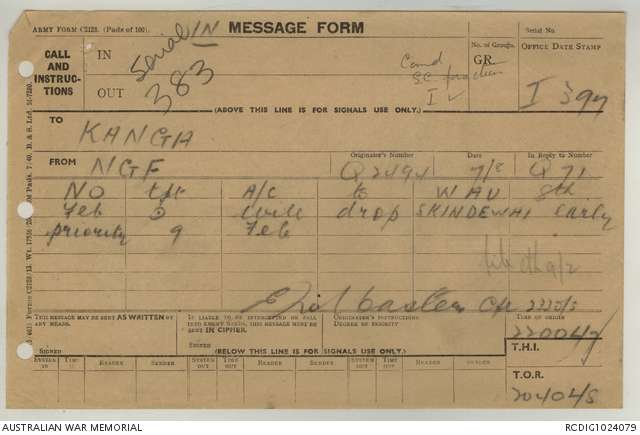 ARMY FORM C2128. (Pads of 100).
MESSAGE FORM
Serial No.
CALL AND INSTRUC- TIONS
IN
Serial IN
OUT
383
No. of Groups.
GR
OFFICE DATE STAMP
I 397
(ABOVE THIS LINE IS FOR SIGNALS USE ONLY.)
TO
KANGA
FROM
NGF
Originator's Number
Q2494
Date
7/2
In Reply to Number
Q 71
NO A/C to WAU 8th
Feb 3 will drop SKINDEWAI early
priority 9 Feb
THIS MESSAGE MAY BE SENT AS WRITTEN BY ANY MEANS.
SIGNED
IF LIABLE TO BE INTERCEPTED OR FALL INTO ENEMY HANDS, THIS MESSAGE MUST BE SENT IN CIPHER.
SIGNED
ORIGINATOR'S INSTRUCTIONS
DEGREE OF PRIORITY
TIME OF ORIGIN
(BELOW THIS LINE IS FOR SIGNALS USE ONLY.)
T.H.I.
T.O.R.
SYSTEM IN
TIME IN
READER
SENDER
SYSTEM OUT
TIME OUT
READER
SENDER
SYSTEM OUT
TIME OUT
READER
SENDER
AUSTRALIAN WAR MEMORIAL
RCDIG1024079